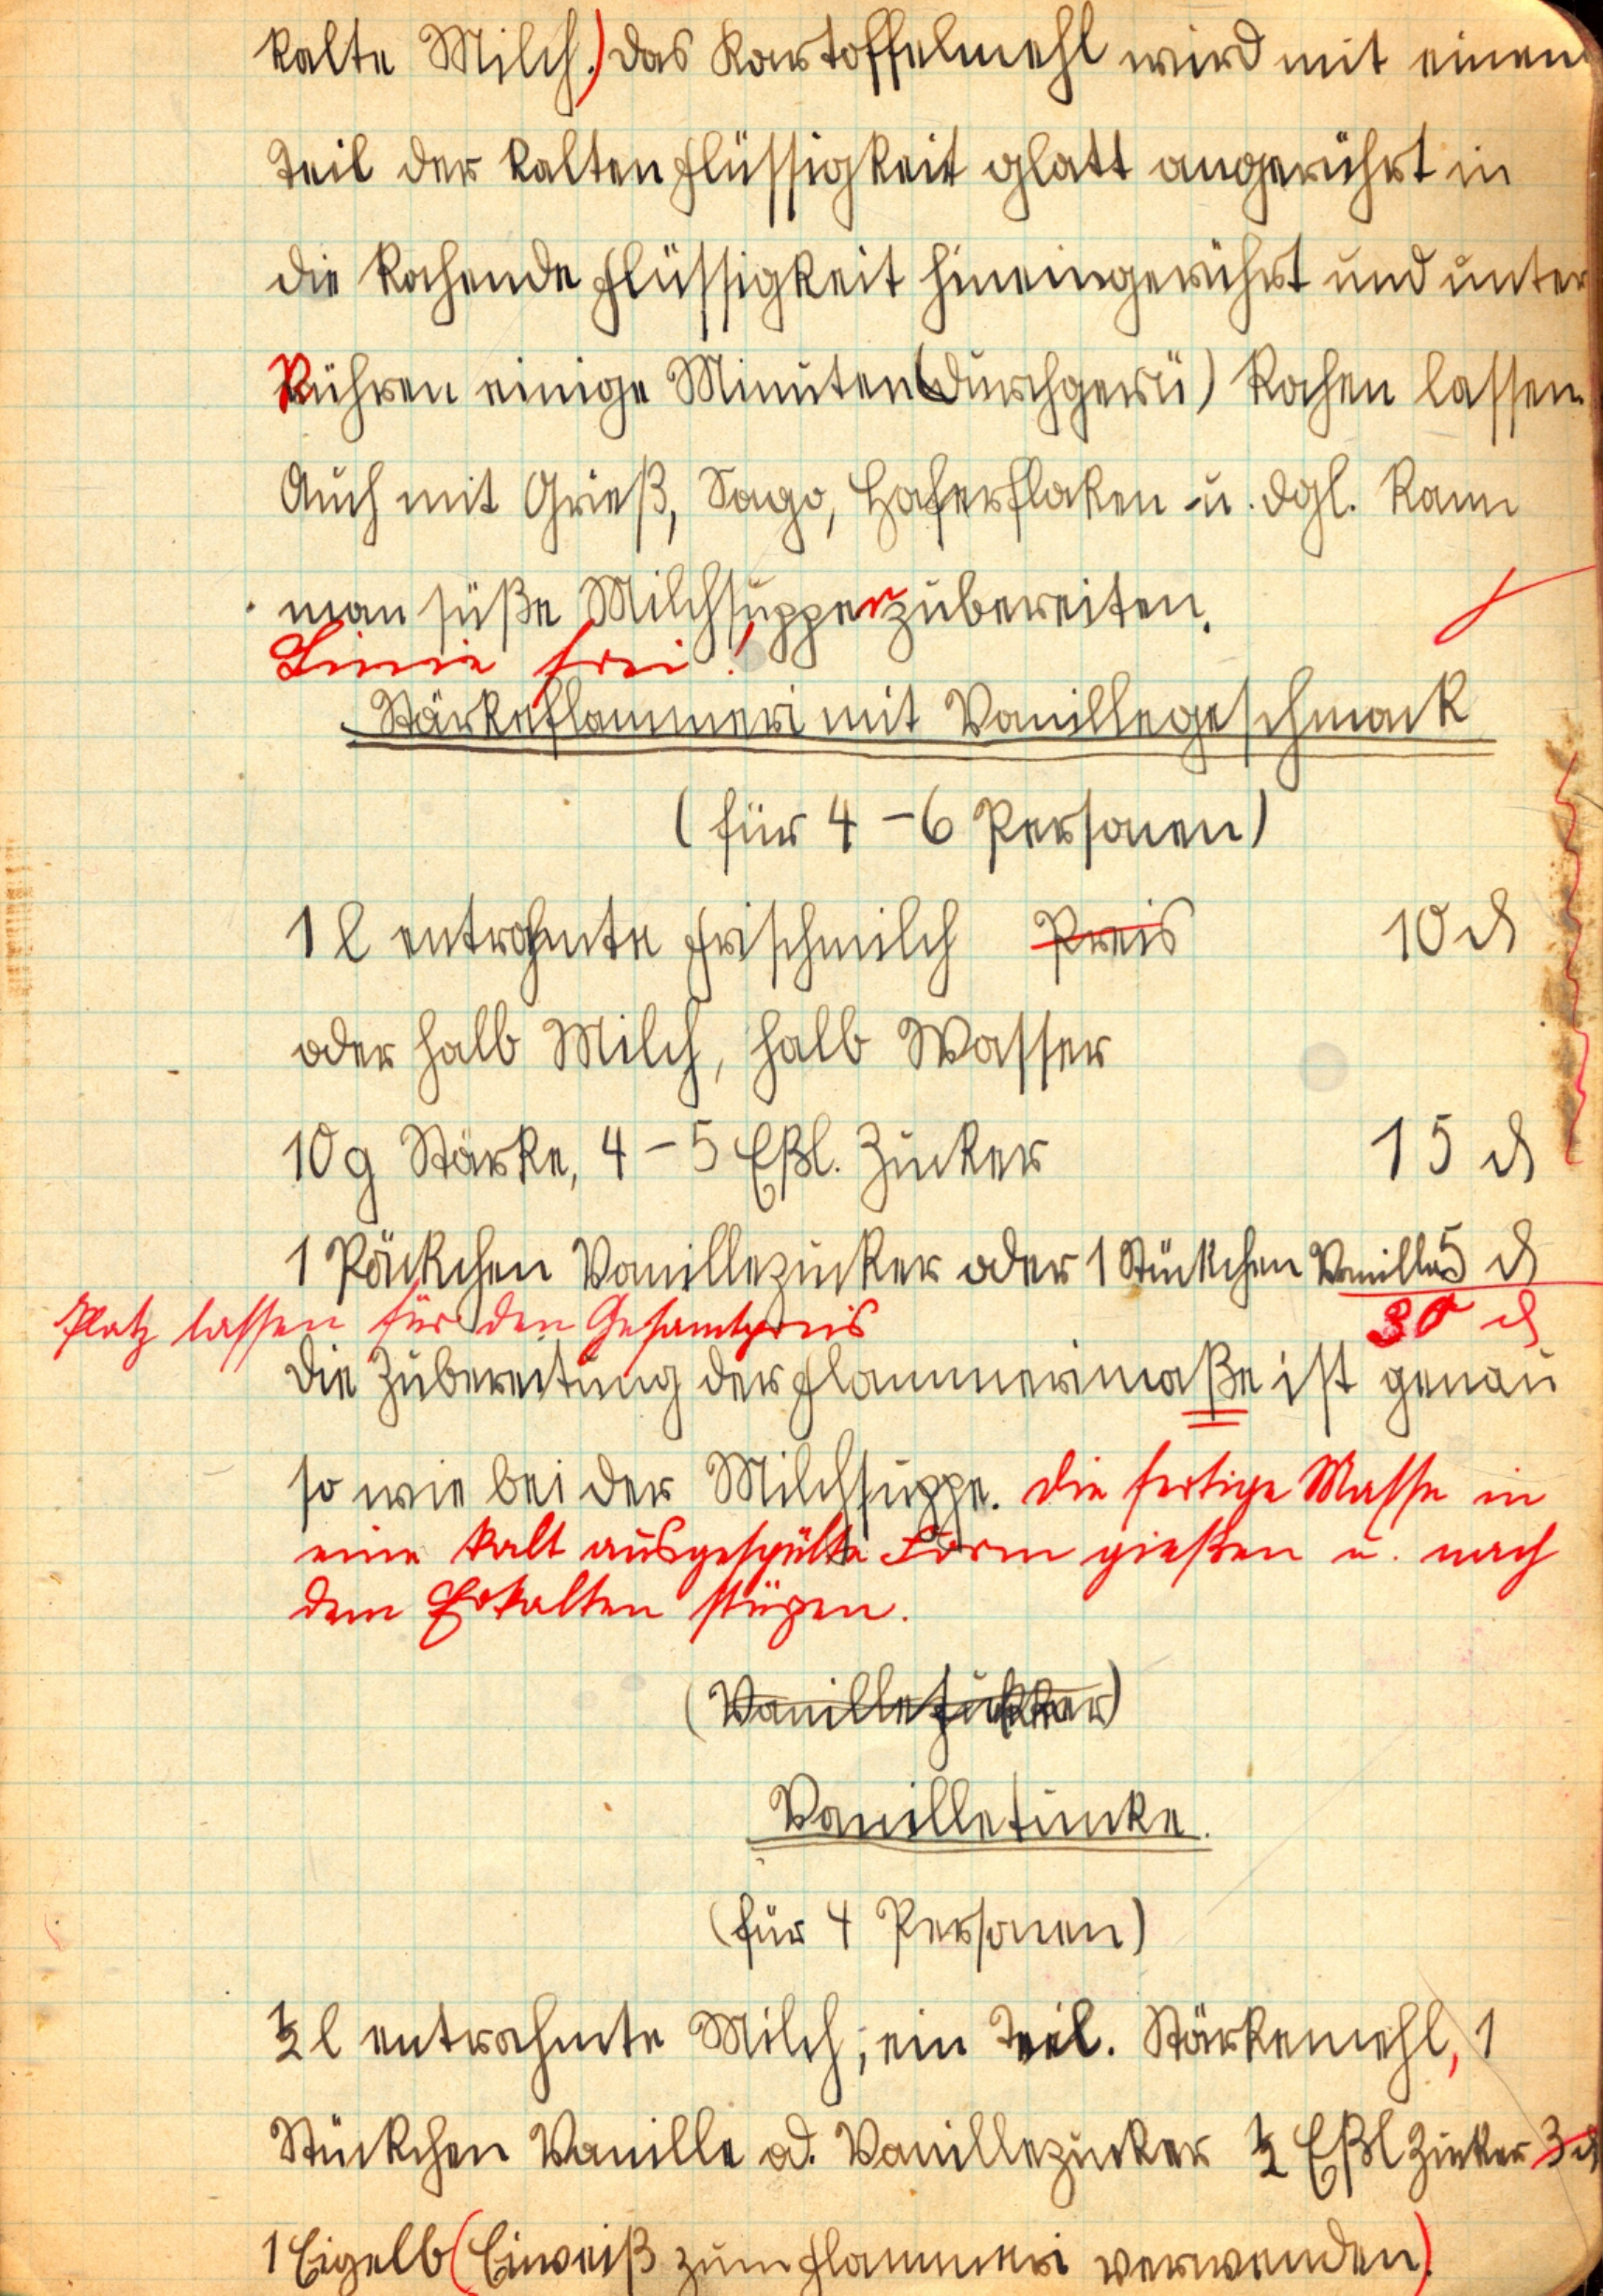 kalte Milch.) das Kartoffelmehl wird mit einem
Teil der kalten Flüssigkeit glatt angerührt in
die kochende Flüssigkeit hineingerührt und unter
Rühren einige Minuten (durchgerü) kochen lassen.
Auch mit Grieß, Sago, Haferflaken u. dgl. kann
man süße Milchsuppen zubereiten.
Linie frei!
Stärkeflammeri mit Vanillegeschmack
(für 4 – 6 Personen)
1 l entrahmte Frischmilch Preis 10 ₰
oder halb Milch, halb Wasser
10 g Stärke, 4 – 5 Eßl. Zucker 15 ₰
1 Päckchen Vanillezucker oder 1 Stückchen Vanille 5 ₰
Platz lassen für den Gesamtpreis 30 ₰
die Zubereitung der Flammerimaße ist genau
so wie bei der Milchsuppe. Die fertige Masse in
eine kalt ausgespülte Form gießen u. nach
dem Erkalten stürzen.
(Vanillezucker)
Vanilletunke.
(für 4 Personen)
½ l entrahmte Milch, ein Teel. Stärkemehl, 1
Stückchen Vanille od. Vanillezucker ½ Eßl Zucker 3 ₰
1 Eigelb (Eiweiß zum Flammeri verwenden).